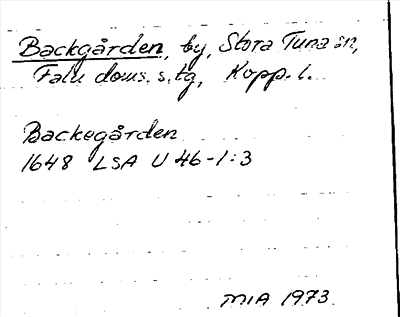 Backgården, by, Stora Tuna sn,
Falu doms. s. tg, Kopp. l.
Backegården
1648 LSA U 46-1:3
MIA 1973.